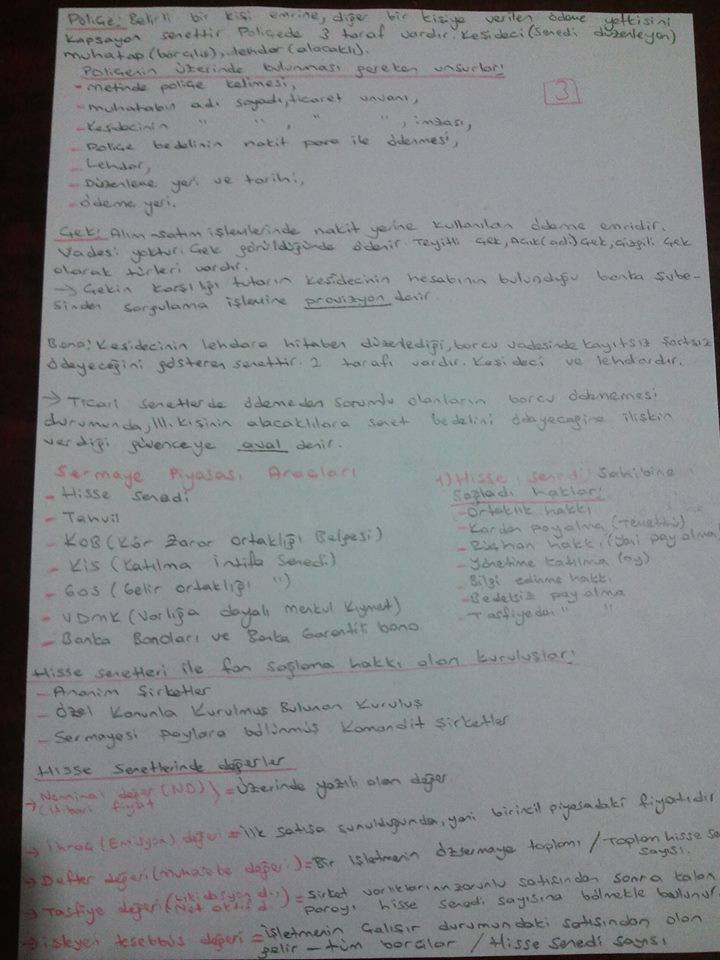 Poliçe: Belirli bir kişi emrine, diğer bir kişiye verilen ödeme yetkisini
kapsayan senettir Poliçede 3 taraf vardır. Keşideci (senedi düzenleyen)
muhatap (borçlu), lehdar (alacaklı).
Poliçenin üzerinde bulunması gereken unsurlar:
- metinde poliçe kelimesi,
- muhatabın adı soyadı, ticaret unvanı,
3
- Keşidecinin " " , " " , imzası,
- Poliçe bedelinin nakit para ile ödenmesi,
- Lehdar,
- Düzenleme yeri ve tarihi,
- Ödeme yeri.
Çek: Alım-satım işlemlerinde nakit yerine kullanılan ödeme emridir.
Vadesi yoktur. Çek görüldüğünde ödenir Teyitli çek, Açık (adi) çek, çizgili çek
olarak türleri vardır.
→ Çekin karşılığı tutarın keşidecinin hesabının bulunduğu banka şube-
sinden sorgulama işlemine provizyon denir.
Bono: Keşidecinin lehdara hitaben düzenlediği, borcu vadesinde kayıtsız şartsız
ödeyeceğini gösteren senettir. 2 tarafı vardır. Keşideci ve lehdardır.
→ Ticari senetlerde ödemeden sorumlu olanların borcu ödenmemesi
durumunda, III. kişinin alacaklılara senet bedelini ödeyeceğine ilişkin
verdiği güvenceye aval denir.
Sermaye Piyasası Araçları
- Hisse senedi
- Tahvil
- KOB (Kâr Zarar Ortaklığı Belgesi)
- KİS (Katılma İntifa Senedi)
- GOS (Gelir ortaklığı ")
- VDMK (Varlığa dayalı menkul kıymet)
- Banka Bonoları ve Banka Garantili bono
1) Hisse senedi: Sahibine
Sağladığı haklar:
- Ortaklık hakkı
- Kardan pay alma (temettü)
- Rüçhan hakkı (yeni pay alma)
- Yönetime katılma (oy)
- Bilgi edinme hakkı
- Bedelsiz pay alma
- Tasfiyeden " "
Hisse senetleri ile fon sağlama hakkı olan kuruluşlar:
- Anonim Şirketler
- Özel Kanunla Kurulmuş Bulunan Kuruluş
- Sermayesi paylara bölünmüş Komandit Şirketler
Hisse Senetlerinde değerler
→ Nominal değer (ND) = Üzerinde yazılı olan değer
(itibari fiyat
→ İhraç (Emisyon) değeri = ilk satışa sunulduğunda, yani birincil piyasadaki fiyatıdır
→ Defter değeri (muhasebe değeri) = Bir işletmenin özsermaye toplamı / Toplam hisse se
sayısı.
→ Tasfiye değeri (Likidasyon d.) = Şirket varlıklarının zorunlu satışından sonra kalan
Net aktif d.
parayı hisse senedi sayısına bölmekle bulunur.
→ işleyen teşebbüs değeri = işletmenin çalışır durumundaki satışından olan
gelir - tüm borçlar / Hisse Senedi sayısı